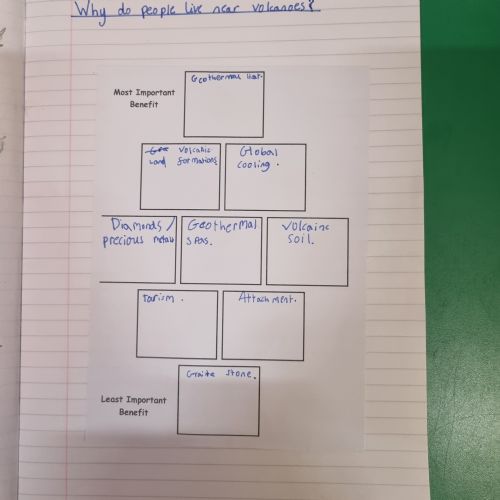 Why do people live near volcanoes?
Geothermal Hat.
Most Important
Benefit
volcanic
Land formations
Global
cooling.
Diamonds /
precious metals
Geothermal
spas.
volcainc
soil.
Tarism.
Attachment.
Graite stone.
Least Important
Benefit